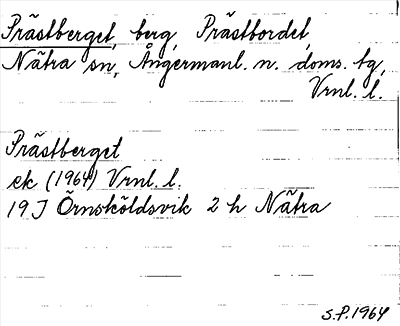 Prästberget, berg, Prästbordet,
Nätra sn, Ångermanl. n. doms. tg,
Vrnl. l.
Prästberget
ek (1964) Vrnl. l.
19 J Örnsköldsvik 2 h Nätra
S.P. 1964